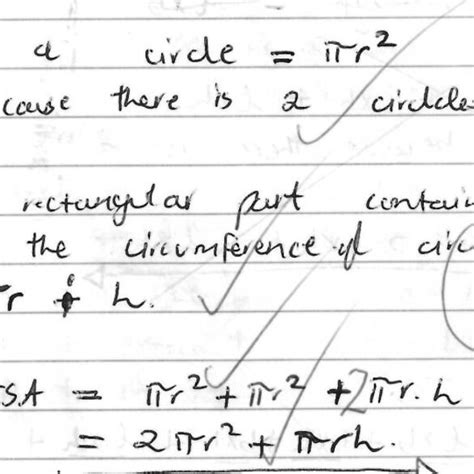 a circle = πr²
cause there is 2 circle
rectangular part contain
the circumference of circ
r + h.
TSA = πr² + πr² + 2πr.h
= 2πr² + πrh.